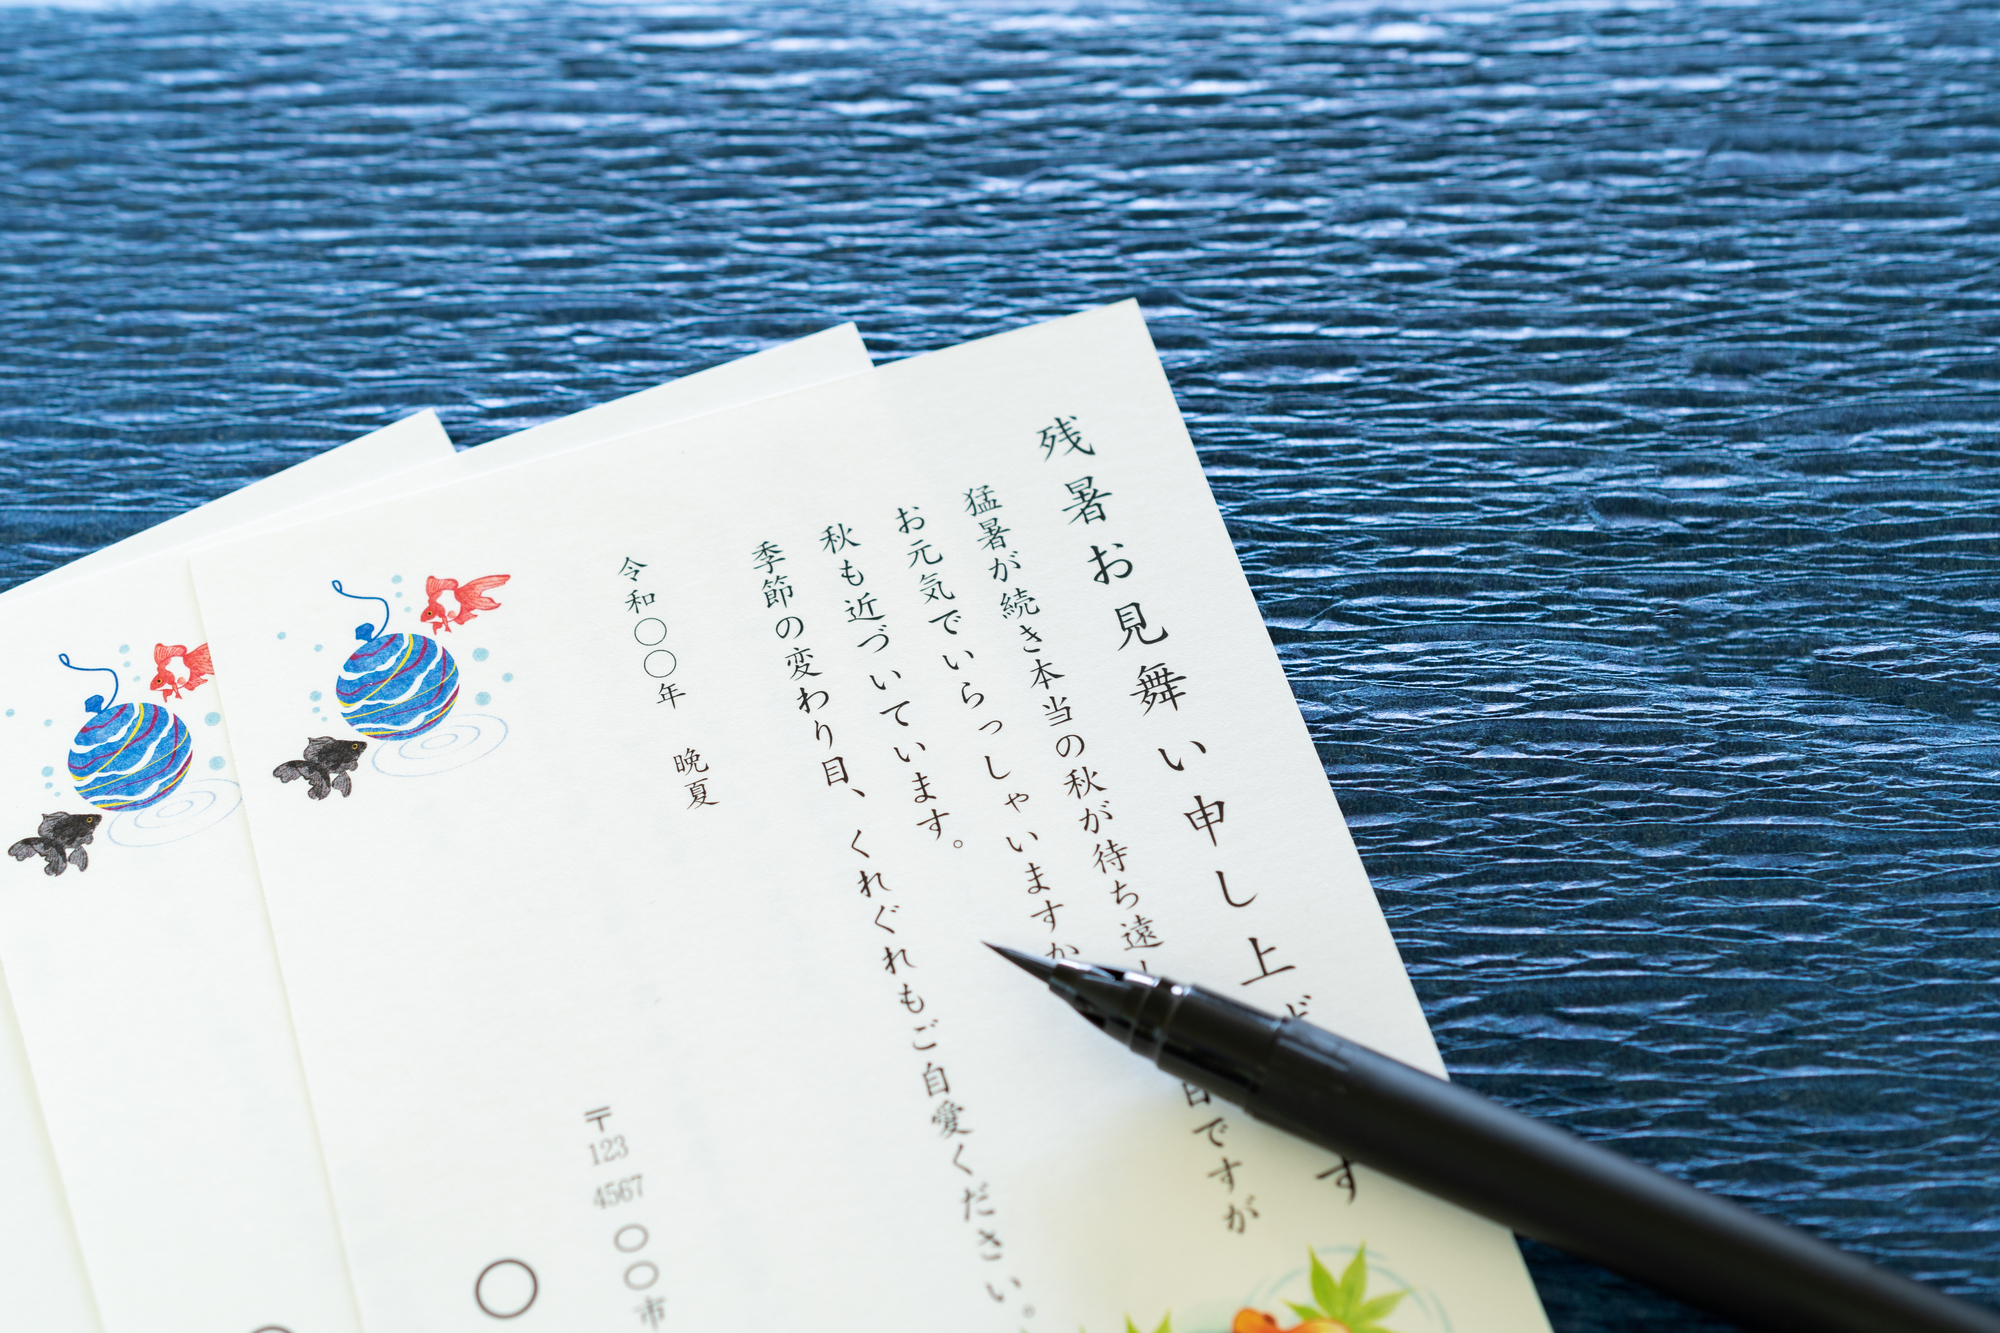 残暑お見舞い申し上げ す
猛暑が続き本当の秋が待ち遠 日ですが
お元気でいらっしゃいますか
秋も近づいています。
季節の変わり目、くれぐれもご自愛ください。
令和〇〇年 晩夏
〒123 4567 〇〇市
〇